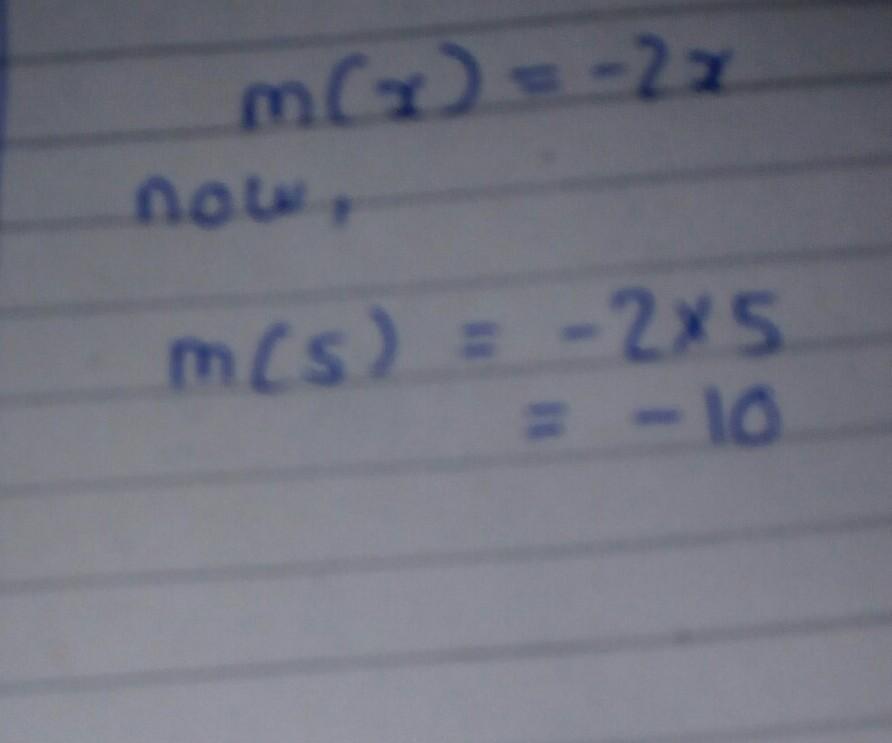 m(x) = -2x
now,
m(5) = -2×5
= -10